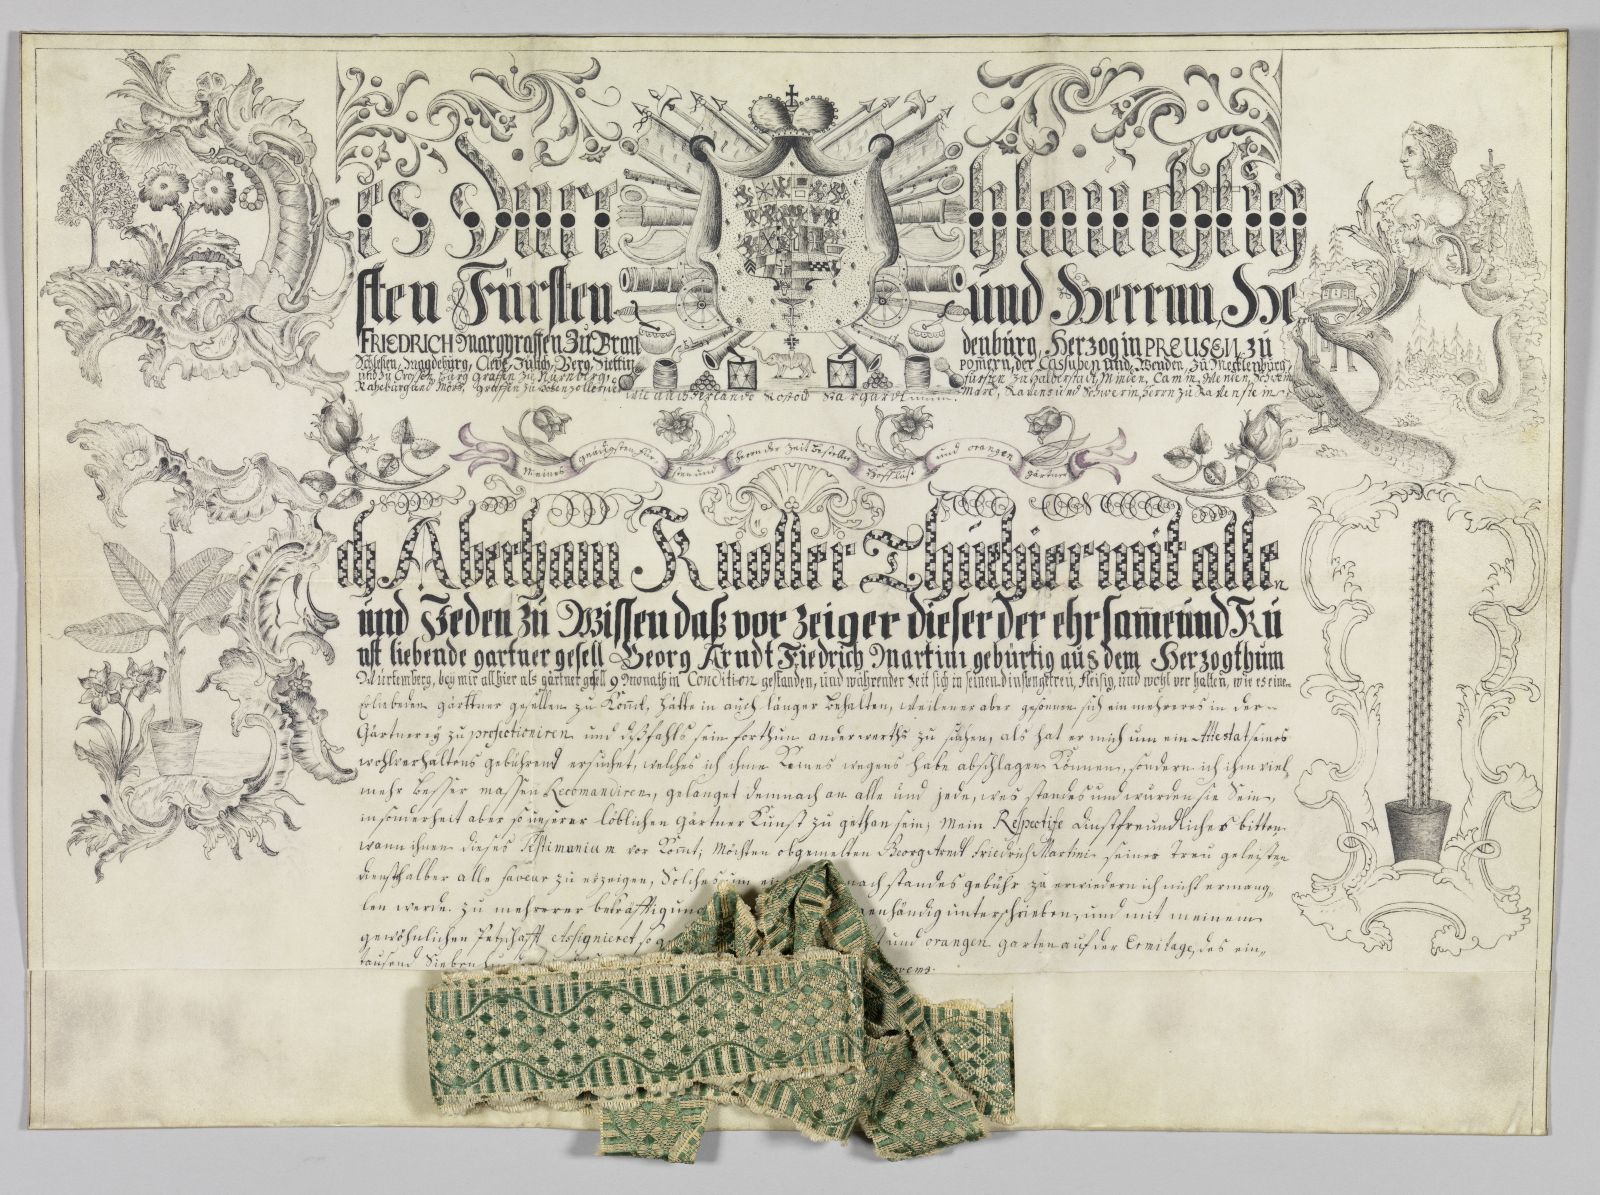 es Durchlauchtig
sten Fürsten und Herrnn, He
FRIEDRICH Marggraffen Zu Brandenbürg, Hertzog in PREUSEN, zü
Schlesien, Magdebürg, Cleve, Jülich, Berg, Stettin, Pomern, der Cassuben und Wenden, zü Mecklenbürg,
und zu Crossen, Bürg Graffen zu Nürnberg, fürsten zu Halberstadt, Minden, Camin, Wenden, Schwerin
Razebürg und Mörs, Graffen zu Hohenzollern, Marc, Ravens und Schwerin, herrn zu Ravenstein,
der Lande Rostok Stargard
Meines gnädigsten Fürsten und Herrn der Zeit bestellter Hoff Lust und orangen gärtner
ch Aberham Knoller Thu hier mit allen
und Jeden zu Wissen daß vor zeiger dieser der ehrsame und Kü
nst liebende gartner gesell Georg Arndt Fiedrich Martini gebürtig aus dem Herzogthum
Würtemberg, bey mir allhier als gärtner gesell 9 Monath in Condition gestanden, und währender Zeit sich in seinen dinsten getreu, fleisig, und wohl ver halten, wie es eine
Erliebeden gärttner gesellen zu Komt, hätte in auch länger behalten, weilen er aber gesonnen sich ein mehreres in der
Gärtnerey zu profectioniren und deßfahls sein forthun anderwerths zu suchen, als hat er mich um ein Attestat seines
wohlverhaltens gebührend ersuchet, welches ich ihme Keines wegens habe abschlagen Können, sondern ich ihm viel
mehr besser massen Recomandiren, gelanget demnach an alle und jede, wes standes und würden sie Sein,
in sonderheit aber so unserer löblichen Gärtner Kunst zu gethan sein, Mein Respective dinstfreundliches bitten
wann ihnen dieses Testimonium vor Komt, Möchten obgemelten Georg Arndt Friedrich Martini seiner Treu geleisten
dienste halber alle faveur zu erzeigen, Solches um ei nach standes gebühr zu erwiedern ich nicht ermang,
len werde. zu mehrerer bekräfftigung enhändig unterschrieben, und mit meinem
gewöhnlichen Petschafft Assignieret so g und orangen garten auf der Ermitage, des ein,
tausend Sieben